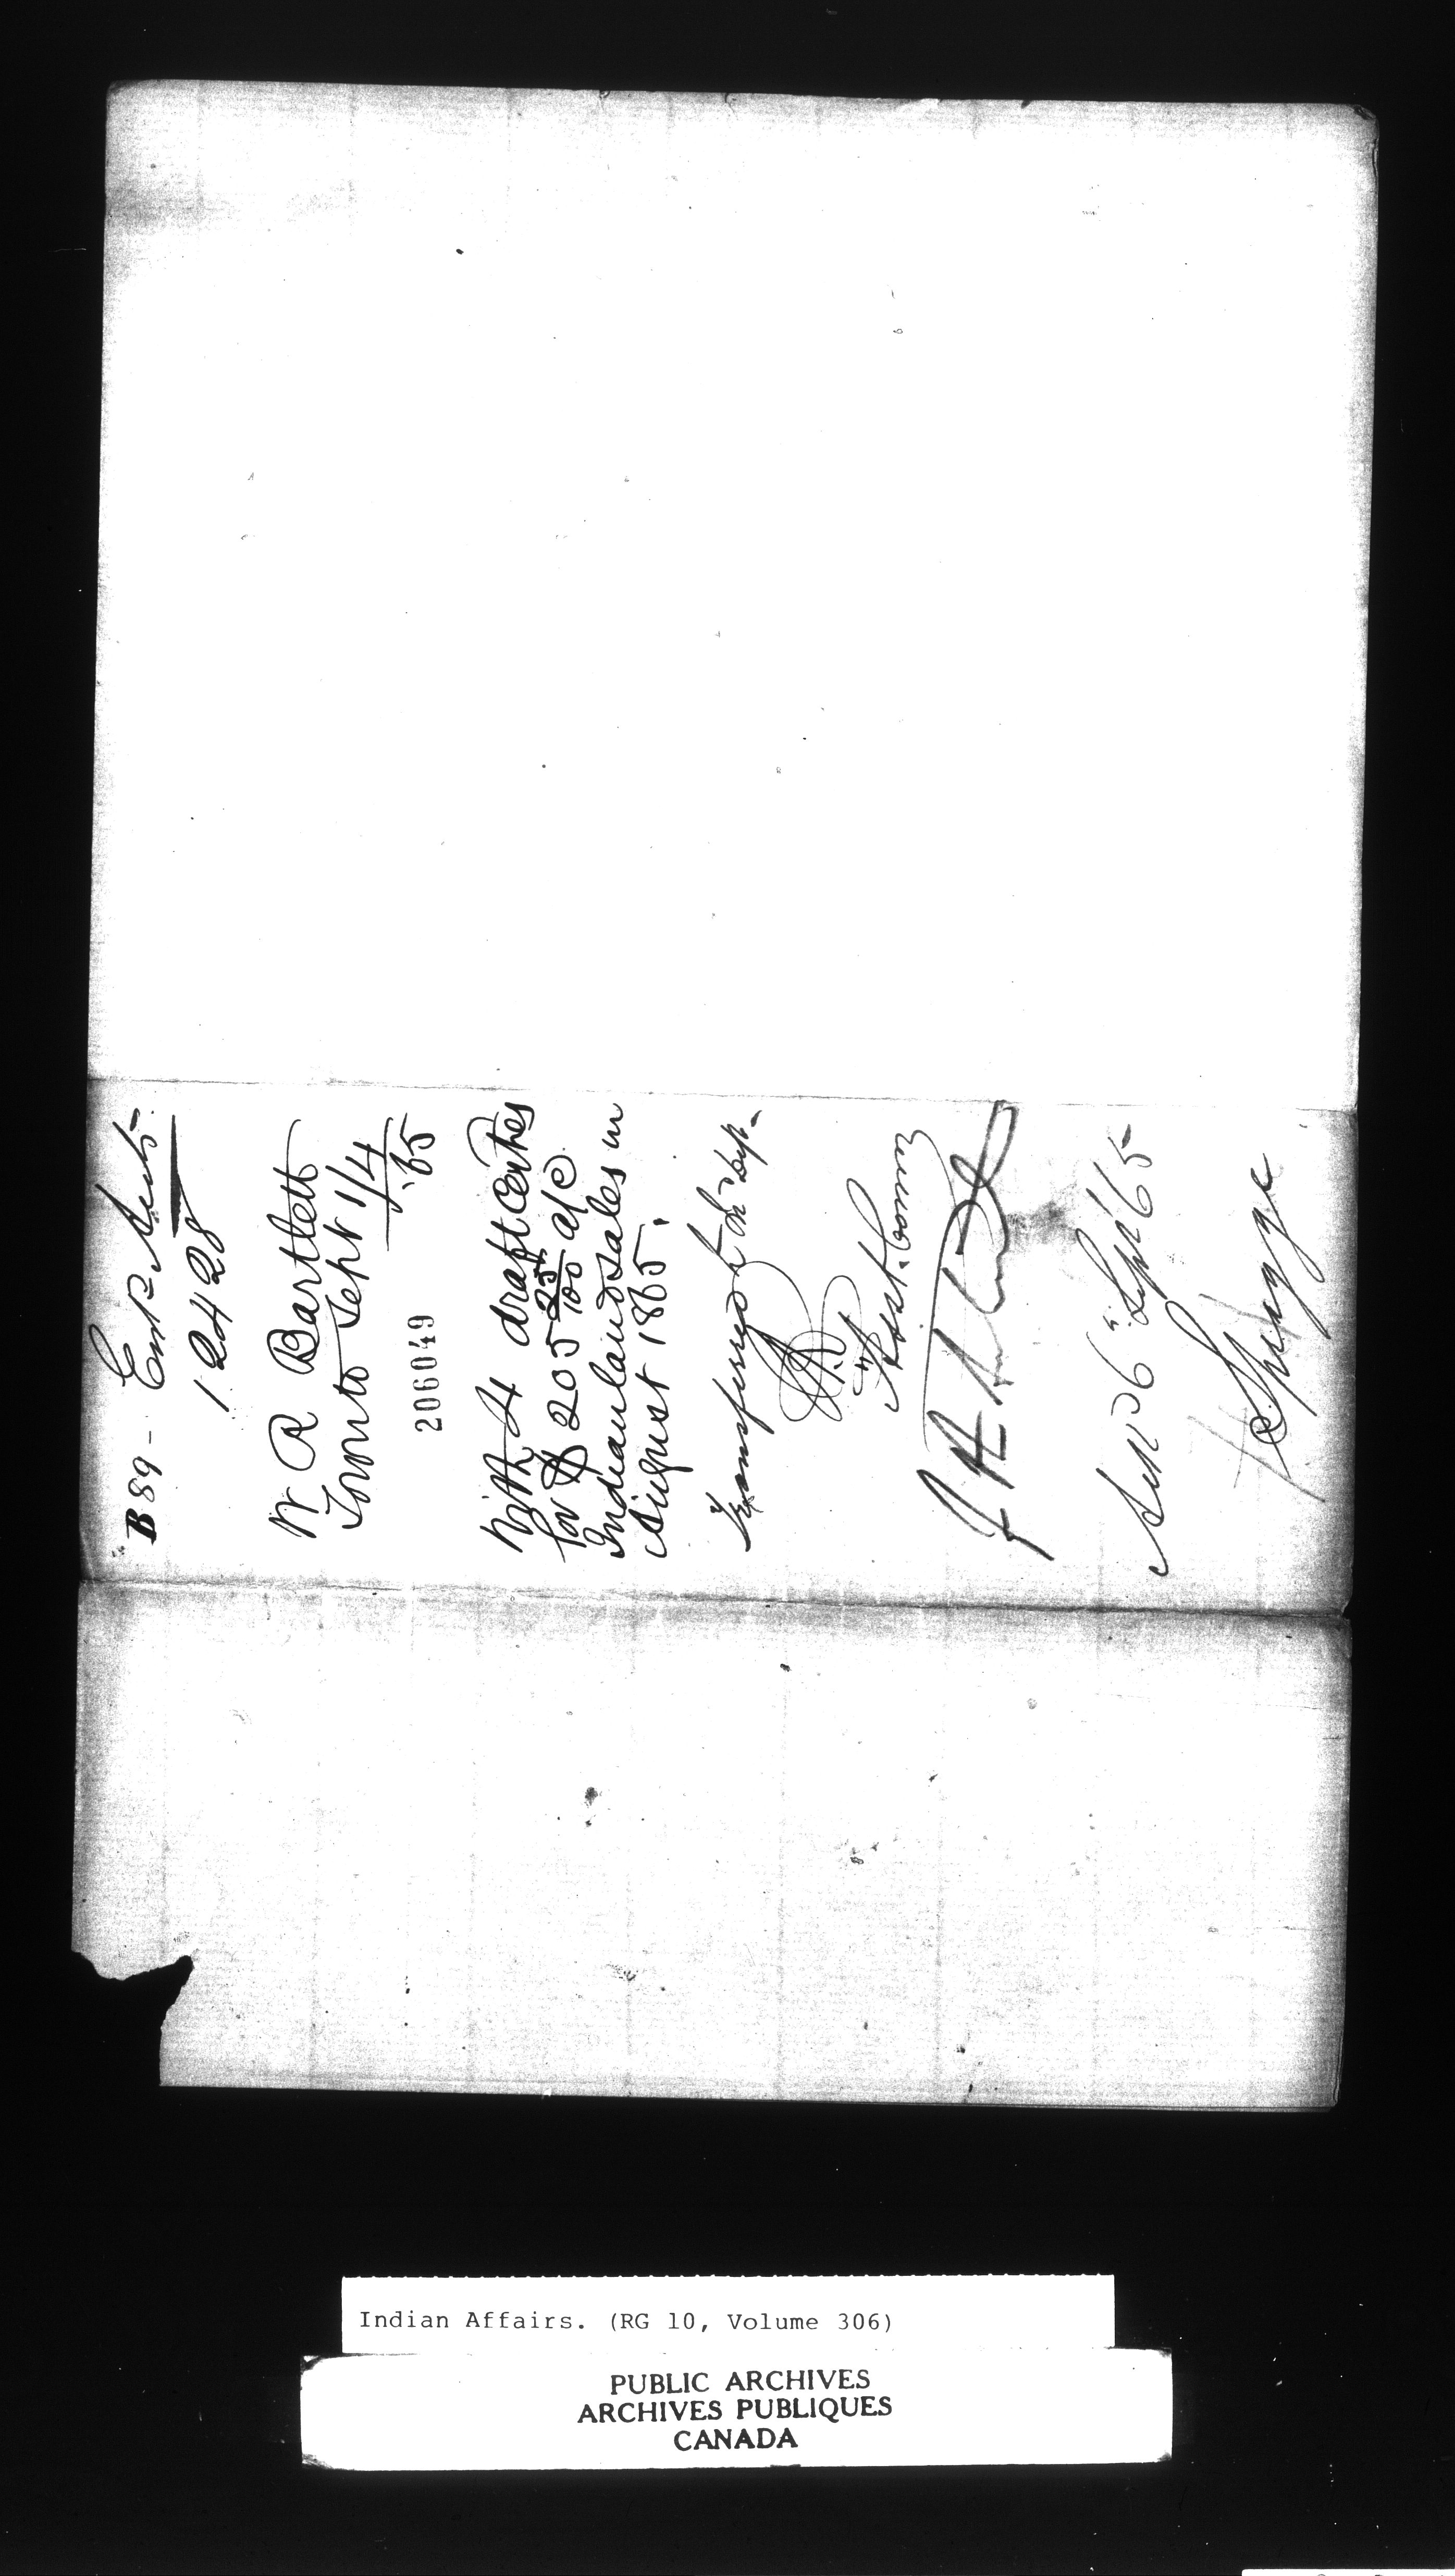 B 89 -
12428
W R Bartlett
Toronto Sept 1/4
'65
206049
With 4 draft Centres
for $205 25/100 a/c
Indian land sales in
August 1865.
Transferred to In Dep.
Asst. Comm
6" Sept '65
Spragge
Indian Affairs. (RG 10, Volume 306)
PUBLIC ARCHIVES
ARCHIVES PUBLIQUES
CANADA